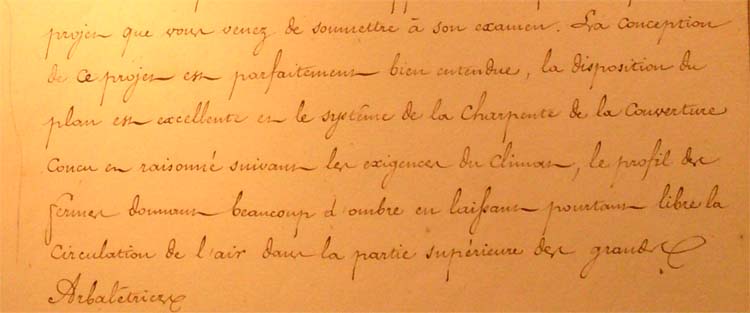 projet que vous venez de soumettre à son examen. La conception
de ce projet est parfaitement bien entendue, la disposition du
plan est excellente et le système de la Charpente de la Couverture
Concu et raisonné suivant les exigences du Climat, le profil des
fermes donnant beaucoup d'ombre en laissant pourtant libre la
Circulation de l'air dans la partie supérieure des grands
Arbalétriers